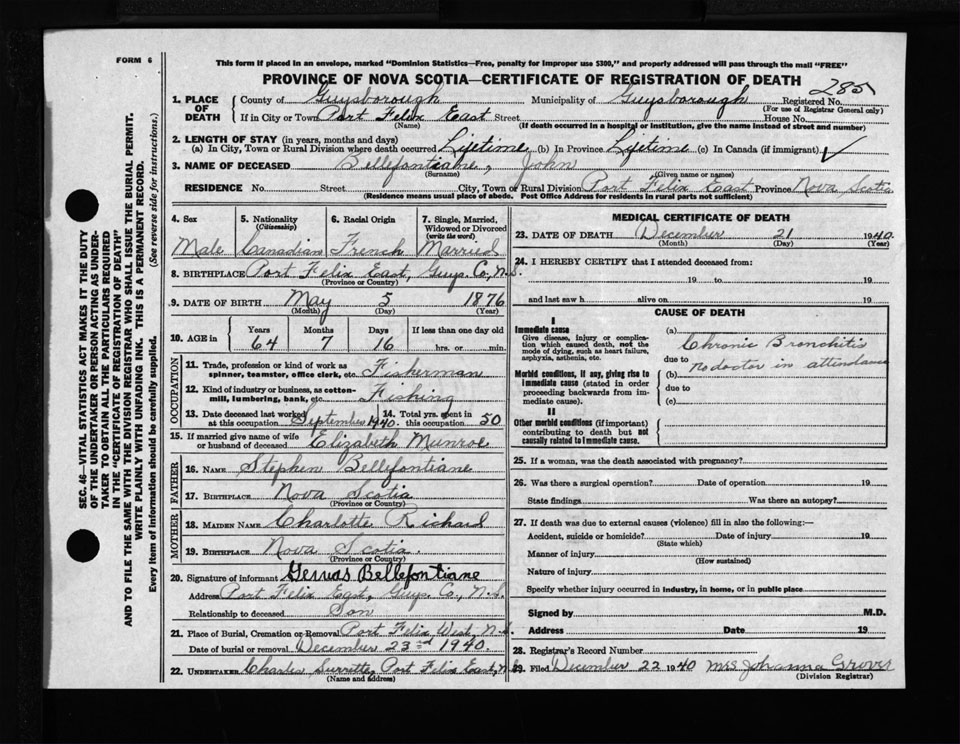 FORM 6
This form if placed in an envelope, marked "Dominion Statistics—Free, penalty for improper use $300," and properly addressed will pass through the mail "FREE"
PROVINCE OF NOVA SCOTIA—CERTIFICATE OF REGISTRATION OF DEATH
285
1. PLACE OF DEATH
County of Guysborough Municipality of Guysborough Registered No.
(For use of Registrar General only)
If in City or Town Port Felix East Street House No.
(Name) (If death occurred in a hospital or institution, give the name instead of street and number)
2. LENGTH OF STAY (in years, months and days)
(a) In City, Town or Rural Division where death occurred Lifetime (b) In Province Lifetime (c) In Canada (if immigrant) ✓
3. NAME OF DECEASED Bellefontiane, John
(Surname) (Given name or names)
RESIDENCE No. Street City, Town or Rural Division Port Felix East Province Nova Scotia
(Residence means usual place of abode. Post Office Address for residents in rural parts not sufficient)
4. Sex 5. Nationality (Citizenship) 6. Racial Origin 7. Single, Married, Widowed or Divorced (write the word)
Male Canadian French Married
8. BIRTHPLACE Port Felix East, Guys. Co, N.S.
(Province or Country)
9. DATE OF BIRTH May 5 1876
(Month) (Day) (Year)
10. AGE in Years Months Days If less than one day old
64 7 16 hrs. or min.
OCCUPATION
11. Trade, profession or kind of work as spinner, teamster, office clerk, etc. Fisherman
12. Kind of industry or business, as cotton-mill, lumbering, bank, etc. Fishing
13. Date deceased last worked at this occupation September 1940. 14. Total yrs. spent in this occupation 50
15. If married give name of wife or husband of deceased Elizabeth Munroe
FATHER
16. NAME Stephen Bellefontiane
17. BIRTHPLACE Nova Scotia
(Province or Country)
MOTHER
18. MAIDEN NAME Charlotte Richard
19. BIRTHPLACE Nova Scotia.
(Province or Country)
20. Signature of informant Gervas Bellefontiane
Address Port Felix East, Guys. Co., N.S.
Relationship to deceased Son
21. Place of Burial, Cremation or Removal Port Felix West, N.S.
Date of burial or removal December 23rd 1940.
22. UNDERTAKER Charles Surrette, Port Felix East, N.S.
(Name and address)
MEDICAL CERTIFICATE OF DEATH
23. DATE OF DEATH December 21 1940.
(Month) (Day) (Year)
24. I HEREBY CERTIFY that I attended deceased from:
19 to 19
and last saw h alive on 19
CAUSE OF DEATH
I
Immediate cause
Give disease, injury or complication which caused death, not the mode of dying, such as heart failure, asphyxia, asthenia, etc.
(a) Chronic Bronchitis
due to
Morbid conditions, if any, giving rise to immediate cause (stated in order proceeding backwards from immediate cause).
(b) no doctor in attendance
due to
(c)
II
Other morbid conditions (if important) contributing to death but not causally related to immediate cause.
25. If a woman, was the death associated with pregnancy?
26. Was there a surgical operation? Date of operation 19
State findings Was there an autopsy?
27. If death was due to external causes (violence) fill in also the following:—
Accident, suicide or homicide? Date of injury 19
(State which)
Manner of injury
(How sustained)
Nature of injury
Specify whether injury occurred in industry, in home, or in public place
Signed by M.D.
Address Date 19
28. Registrar's Record Number
29. Filed December 22 1940 Mrs Johanna Grover
(Division Registrar)
SEC. 46—VITAL STATISTICS ACT MAKES IT THE DUTY
OF THE UNDERTAKER OR PERSON ACTING AS UNDER-
TAKER TO OBTAIN ALL THE PARTICULARS REQUIRED
IN THE "CERTIFICATE OF REGISTRATION OF DEATH"
AND TO FILE THE SAME WITH THE DIVISION REGISTRAR WHO SHALL ISSUE THE BURIAL PERMIT.
WRITE PLAINLY WITH UNFADING INK. THIS IS A PERMANENT RECORD.
Every item of Information should be carefully supplied. (See reverse side for instructions.)